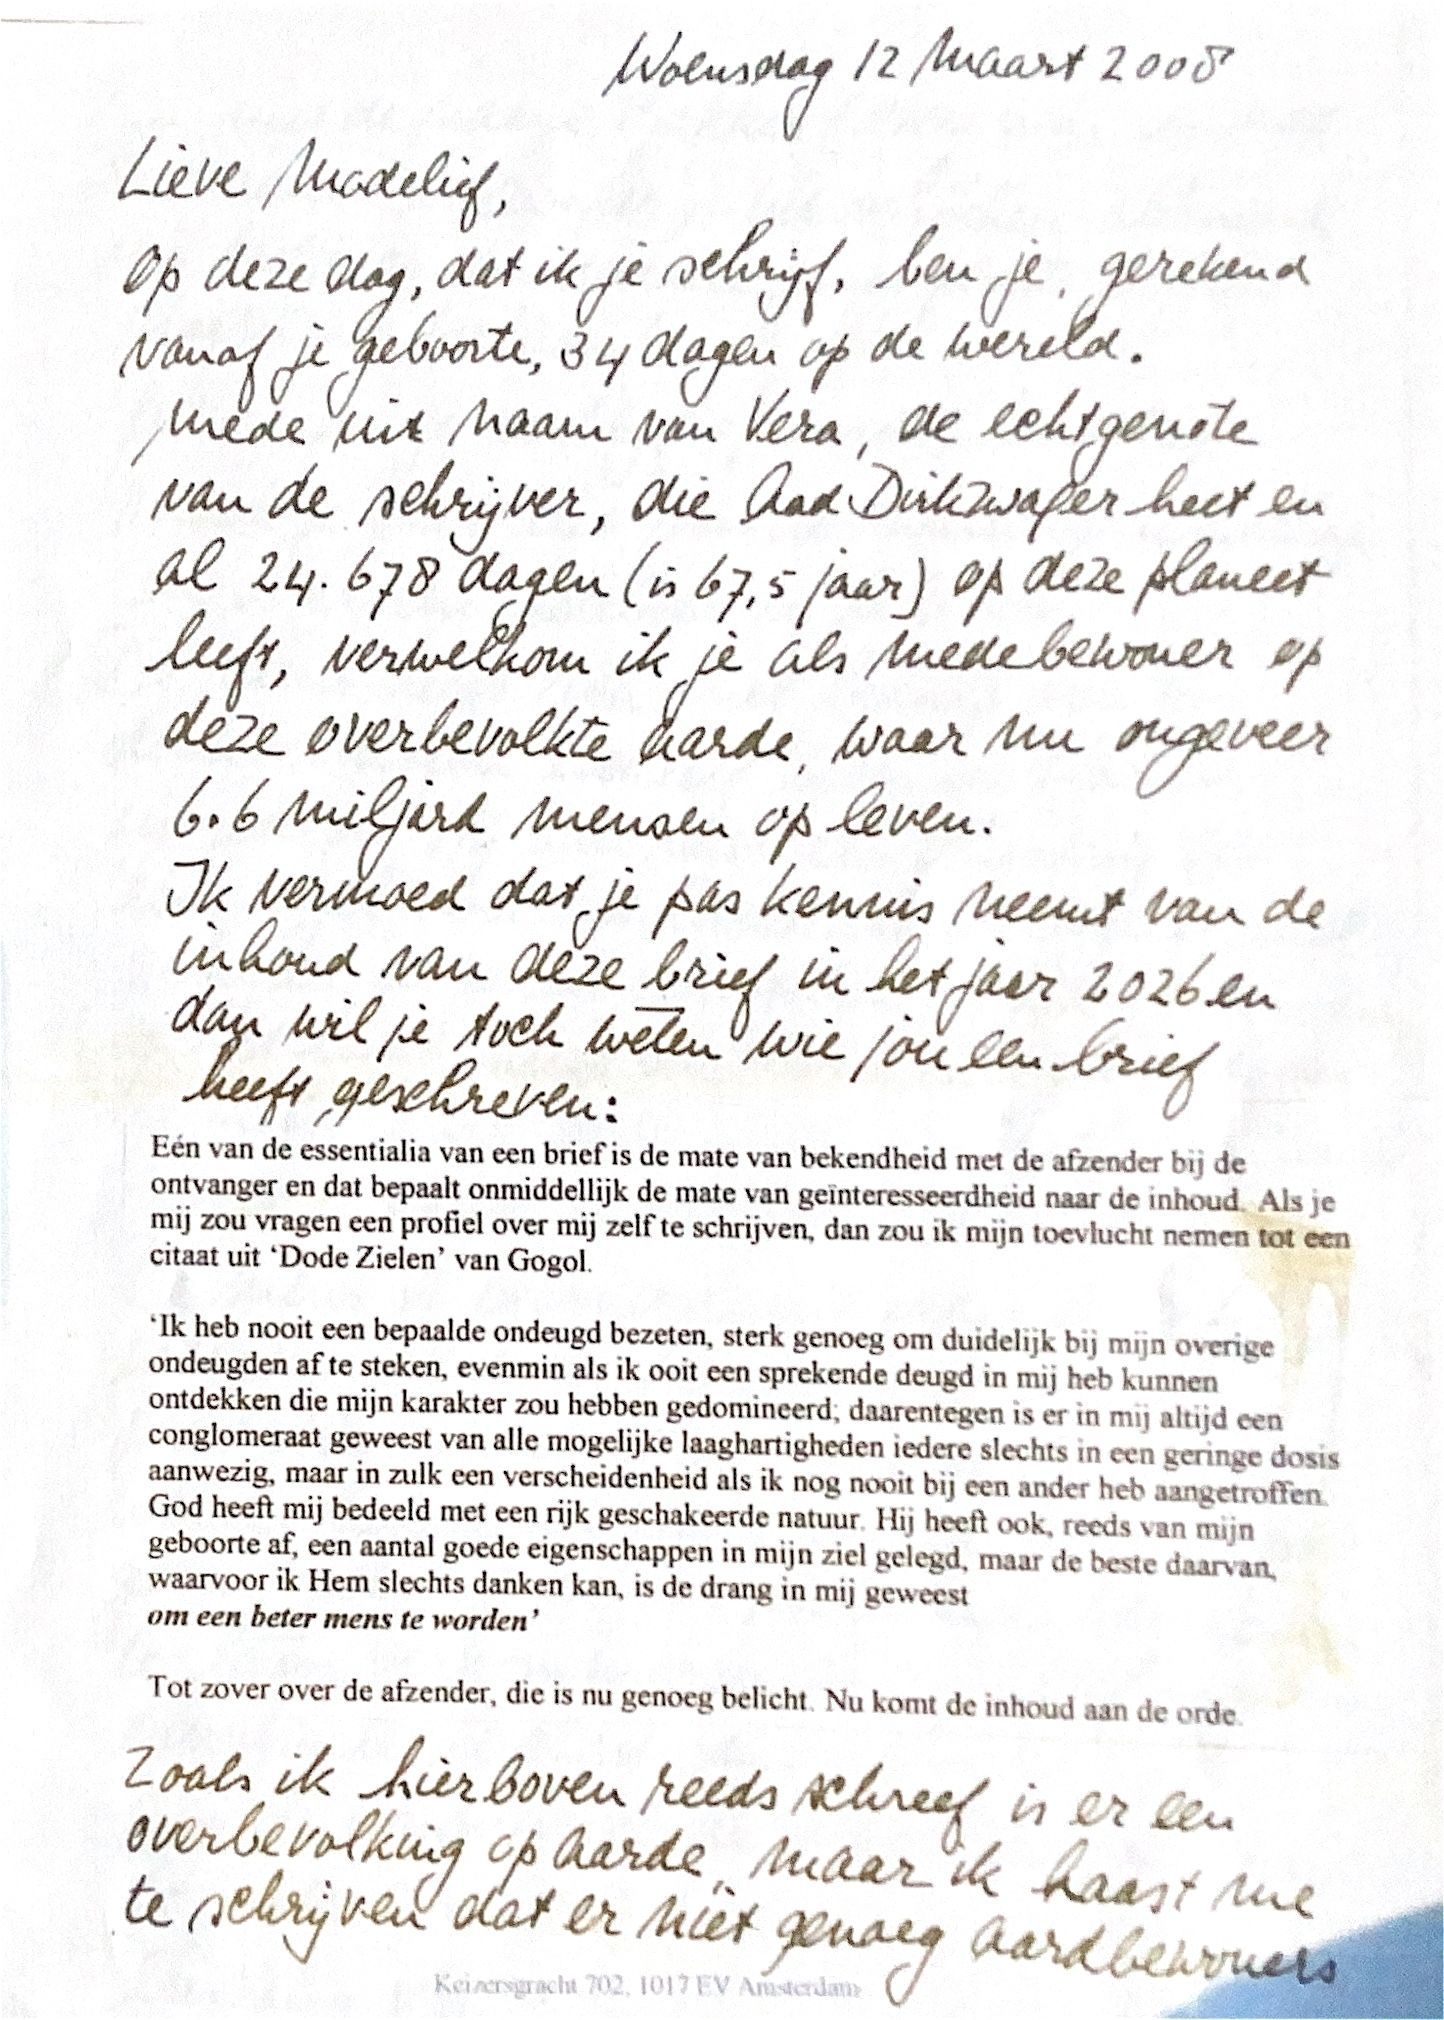 Woensdag 12 Maart 2008
Lieve Madelief,
Op deze dag, dat ik je schrijf, ben je, gerekend
vanaf je geboorte, 34 dagen op de wereld.
Mede uit naam van Vera, de echtgenote
van de schrijver, die Aad Dirkzwager heet en
al 24.678 dagen (is 67,5 jaar) op deze planeet
leeft, verwelkom ik je als medebewoner op
deze overbevolkte aarde, waar nu ongeveer
6.6 miljard mensen op leven.
Ik vermoed dat je pas kennis neemt van de
inhoud van deze brief in het jaar 2026 en
dan wil je toch weten wie jou een brief
heeft geschreven:
Eén van de essentialia van een brief is de mate van bekendheid met de afzender bij de
ontvanger en dat bepaalt onmiddellijk de mate van geïnteresseerdheid naar de inhoud. Als je
mij zou vragen een profiel over mij zelf te schrijven, dan zou ik mijn toevlucht nemen tot een
citaat uit ‘Dode Zielen’ van Gogol.
‘Ik heb nooit een bepaalde ondeugd bezeten, sterk genoeg om duidelijk bij mijn overige
ondeugden af te steken, evenmin als ik ooit een sprekende deugd in mij heb kunnen
ontdekken die mijn karakter zou hebben gedomineerd; daarentegen is er in mij altijd een
conglomeraat geweest van alle mogelijke laaghartigheden iedere slechts in een geringe dosis
aanwezig, maar in zulk een verscheidenheid als ik nog nooit bij een ander heb aangetroffen.
God heeft mij bedeeld met een rijk geschakeerde natuur. Hij heeft ook, reeds van mijn
geboorte af, een aantal goede eigenschappen in mijn ziel gelegd, maar de beste daarvan,
waarvoor ik Hem slechts danken kan, is de drang in mij geweest
om een beter mens te worden’
Tot zover over de afzender, die is nu genoeg belicht. Nu komt de inhoud aan de orde.
Zoals ik hierboven reeds schreef is er een
overbevolking op aarde, maar ik haast me
te schrijven dat er niet genoeg aardbewoners
Keizersgracht 702, 1017 EV Amsterdam